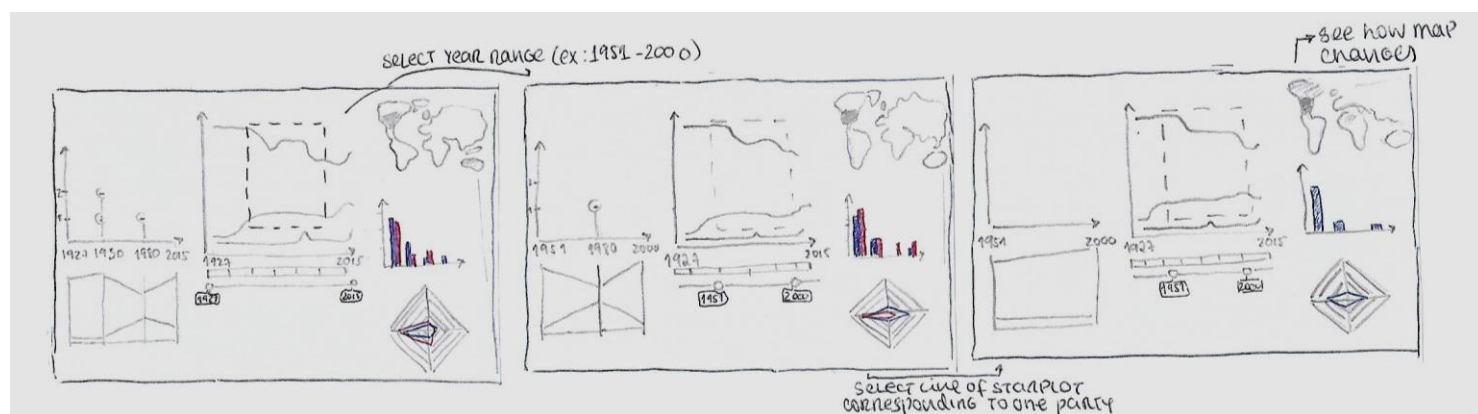 SELECT YEAR RANGE (ex: 1951-2000)
see how map
changes
2
1
1927 1950 1980 2015
1927 2015
1927 2015
1
1951 1980 2000
1927 2015
1951 2000
1951 2000
1927 2015
1951 2000
select line of starplot
corresponding to one party